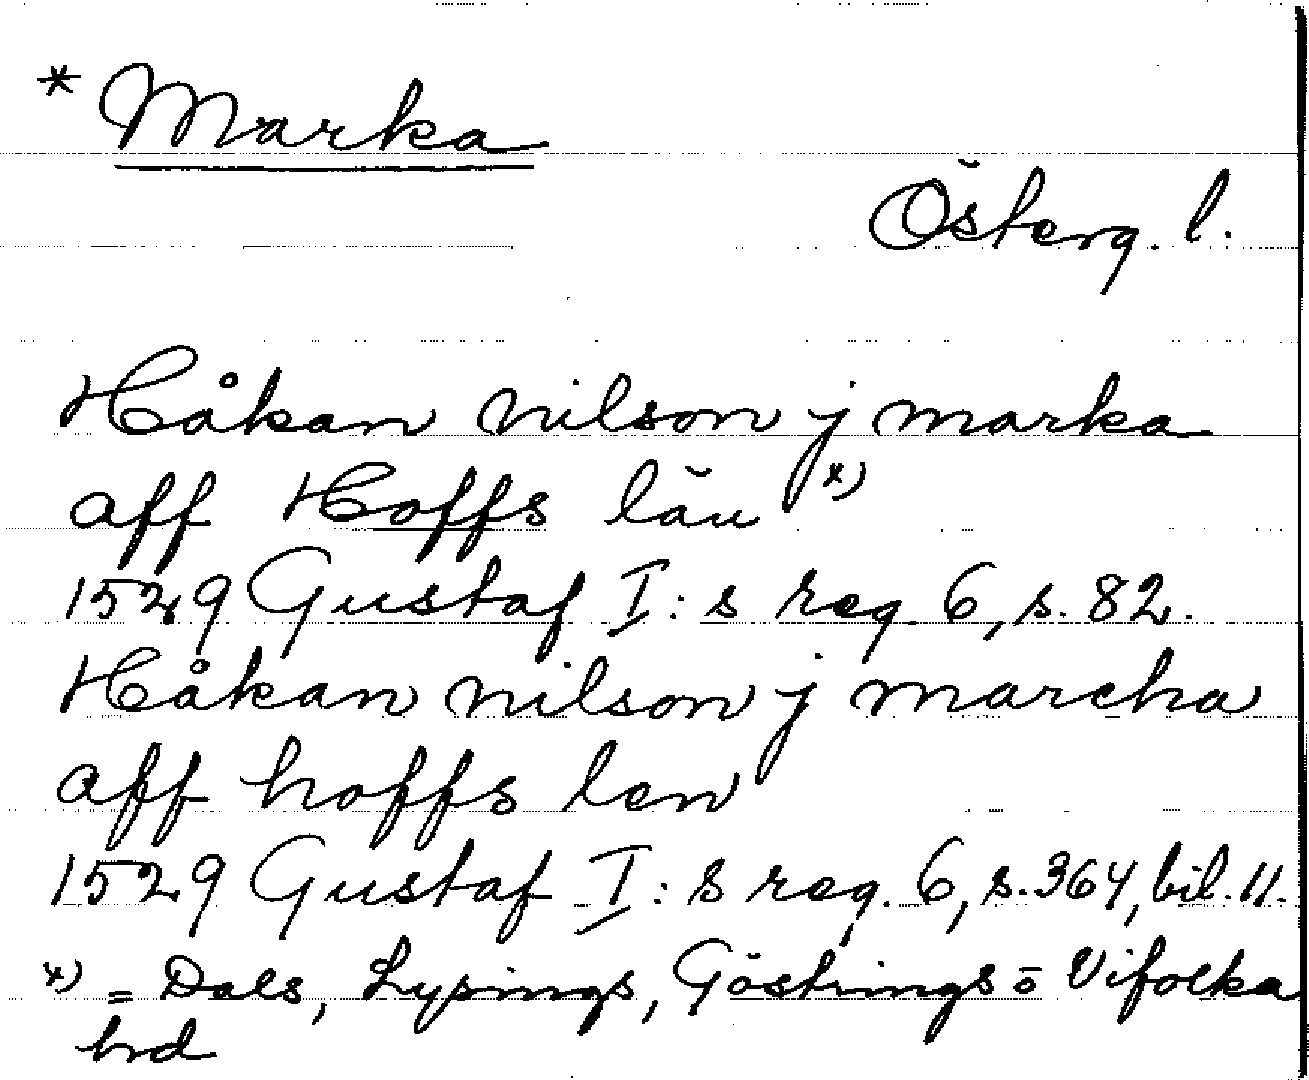 * Marka
Österg. l.
Håkan nilson j marka
aff Hoffs län *)
1529 Gustaf I:s reg. 6, s. 82.
Håkan nilson j marcha
aff hoffs len
1529 Gustaf I:s reg. 6, s. 364, bil. 11.
*) = Dals, Lysings, Göstrings o Vifolka
hrd